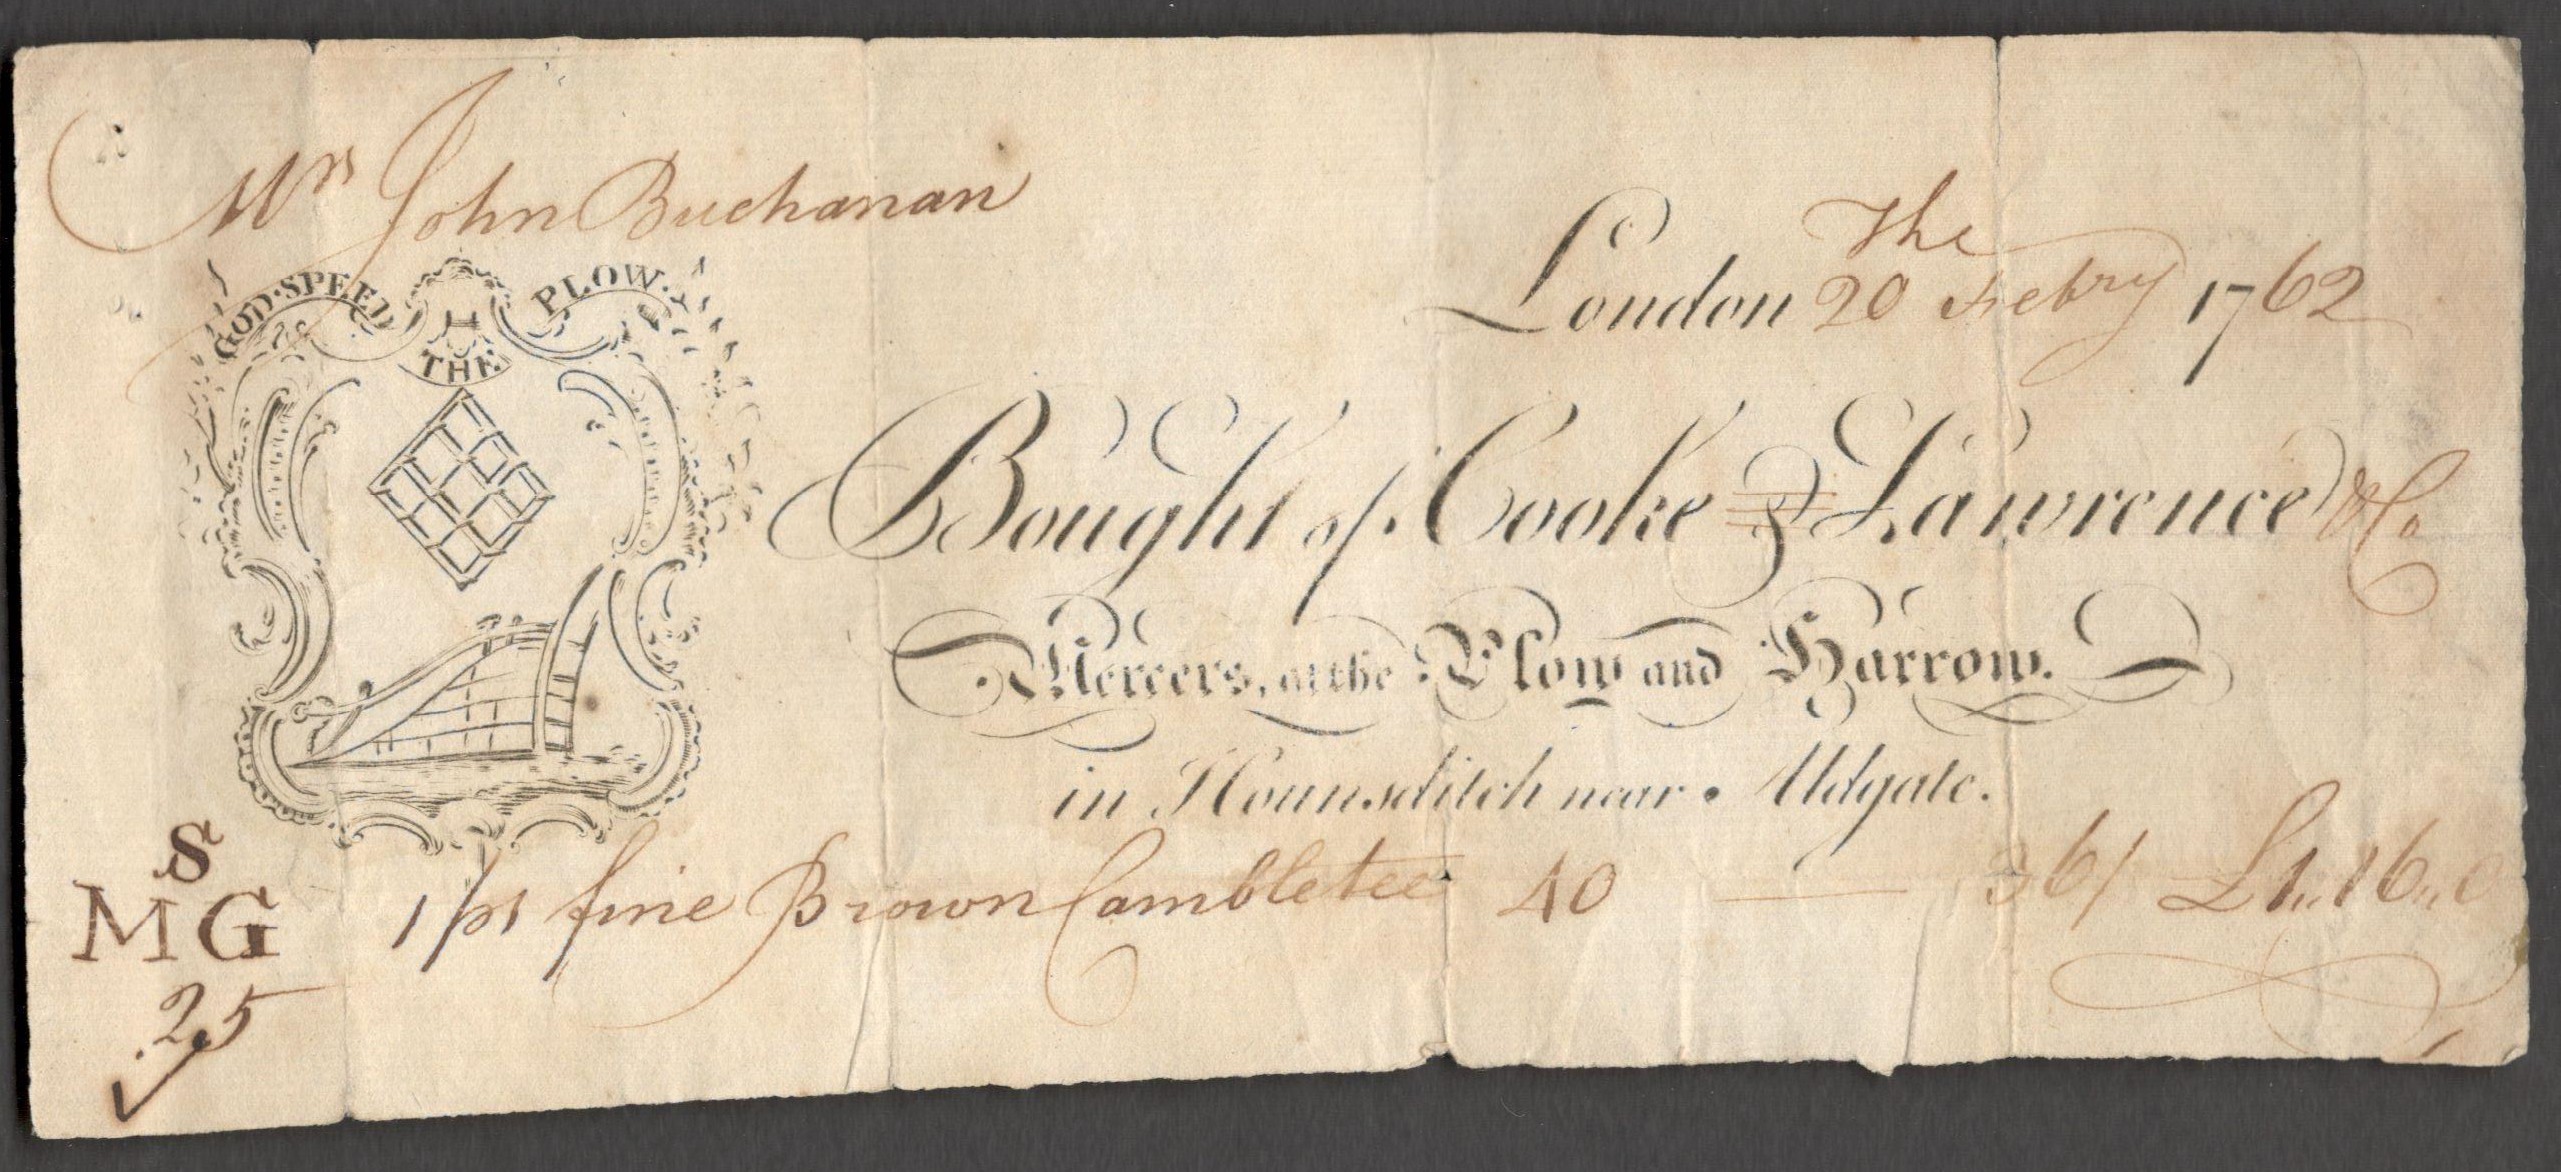 Mrs John Buchanan
GOD·SPEED THE PLOW.
The
London 20 Febry 1762
Bought of Cooke & Lawrence &Co
Mercers, at the Plow and Harrow.
in Hounsditch near Aldgate.
S
MG
25
1 ps fine Brown Cambletee 40 — 36/ £1"16"0